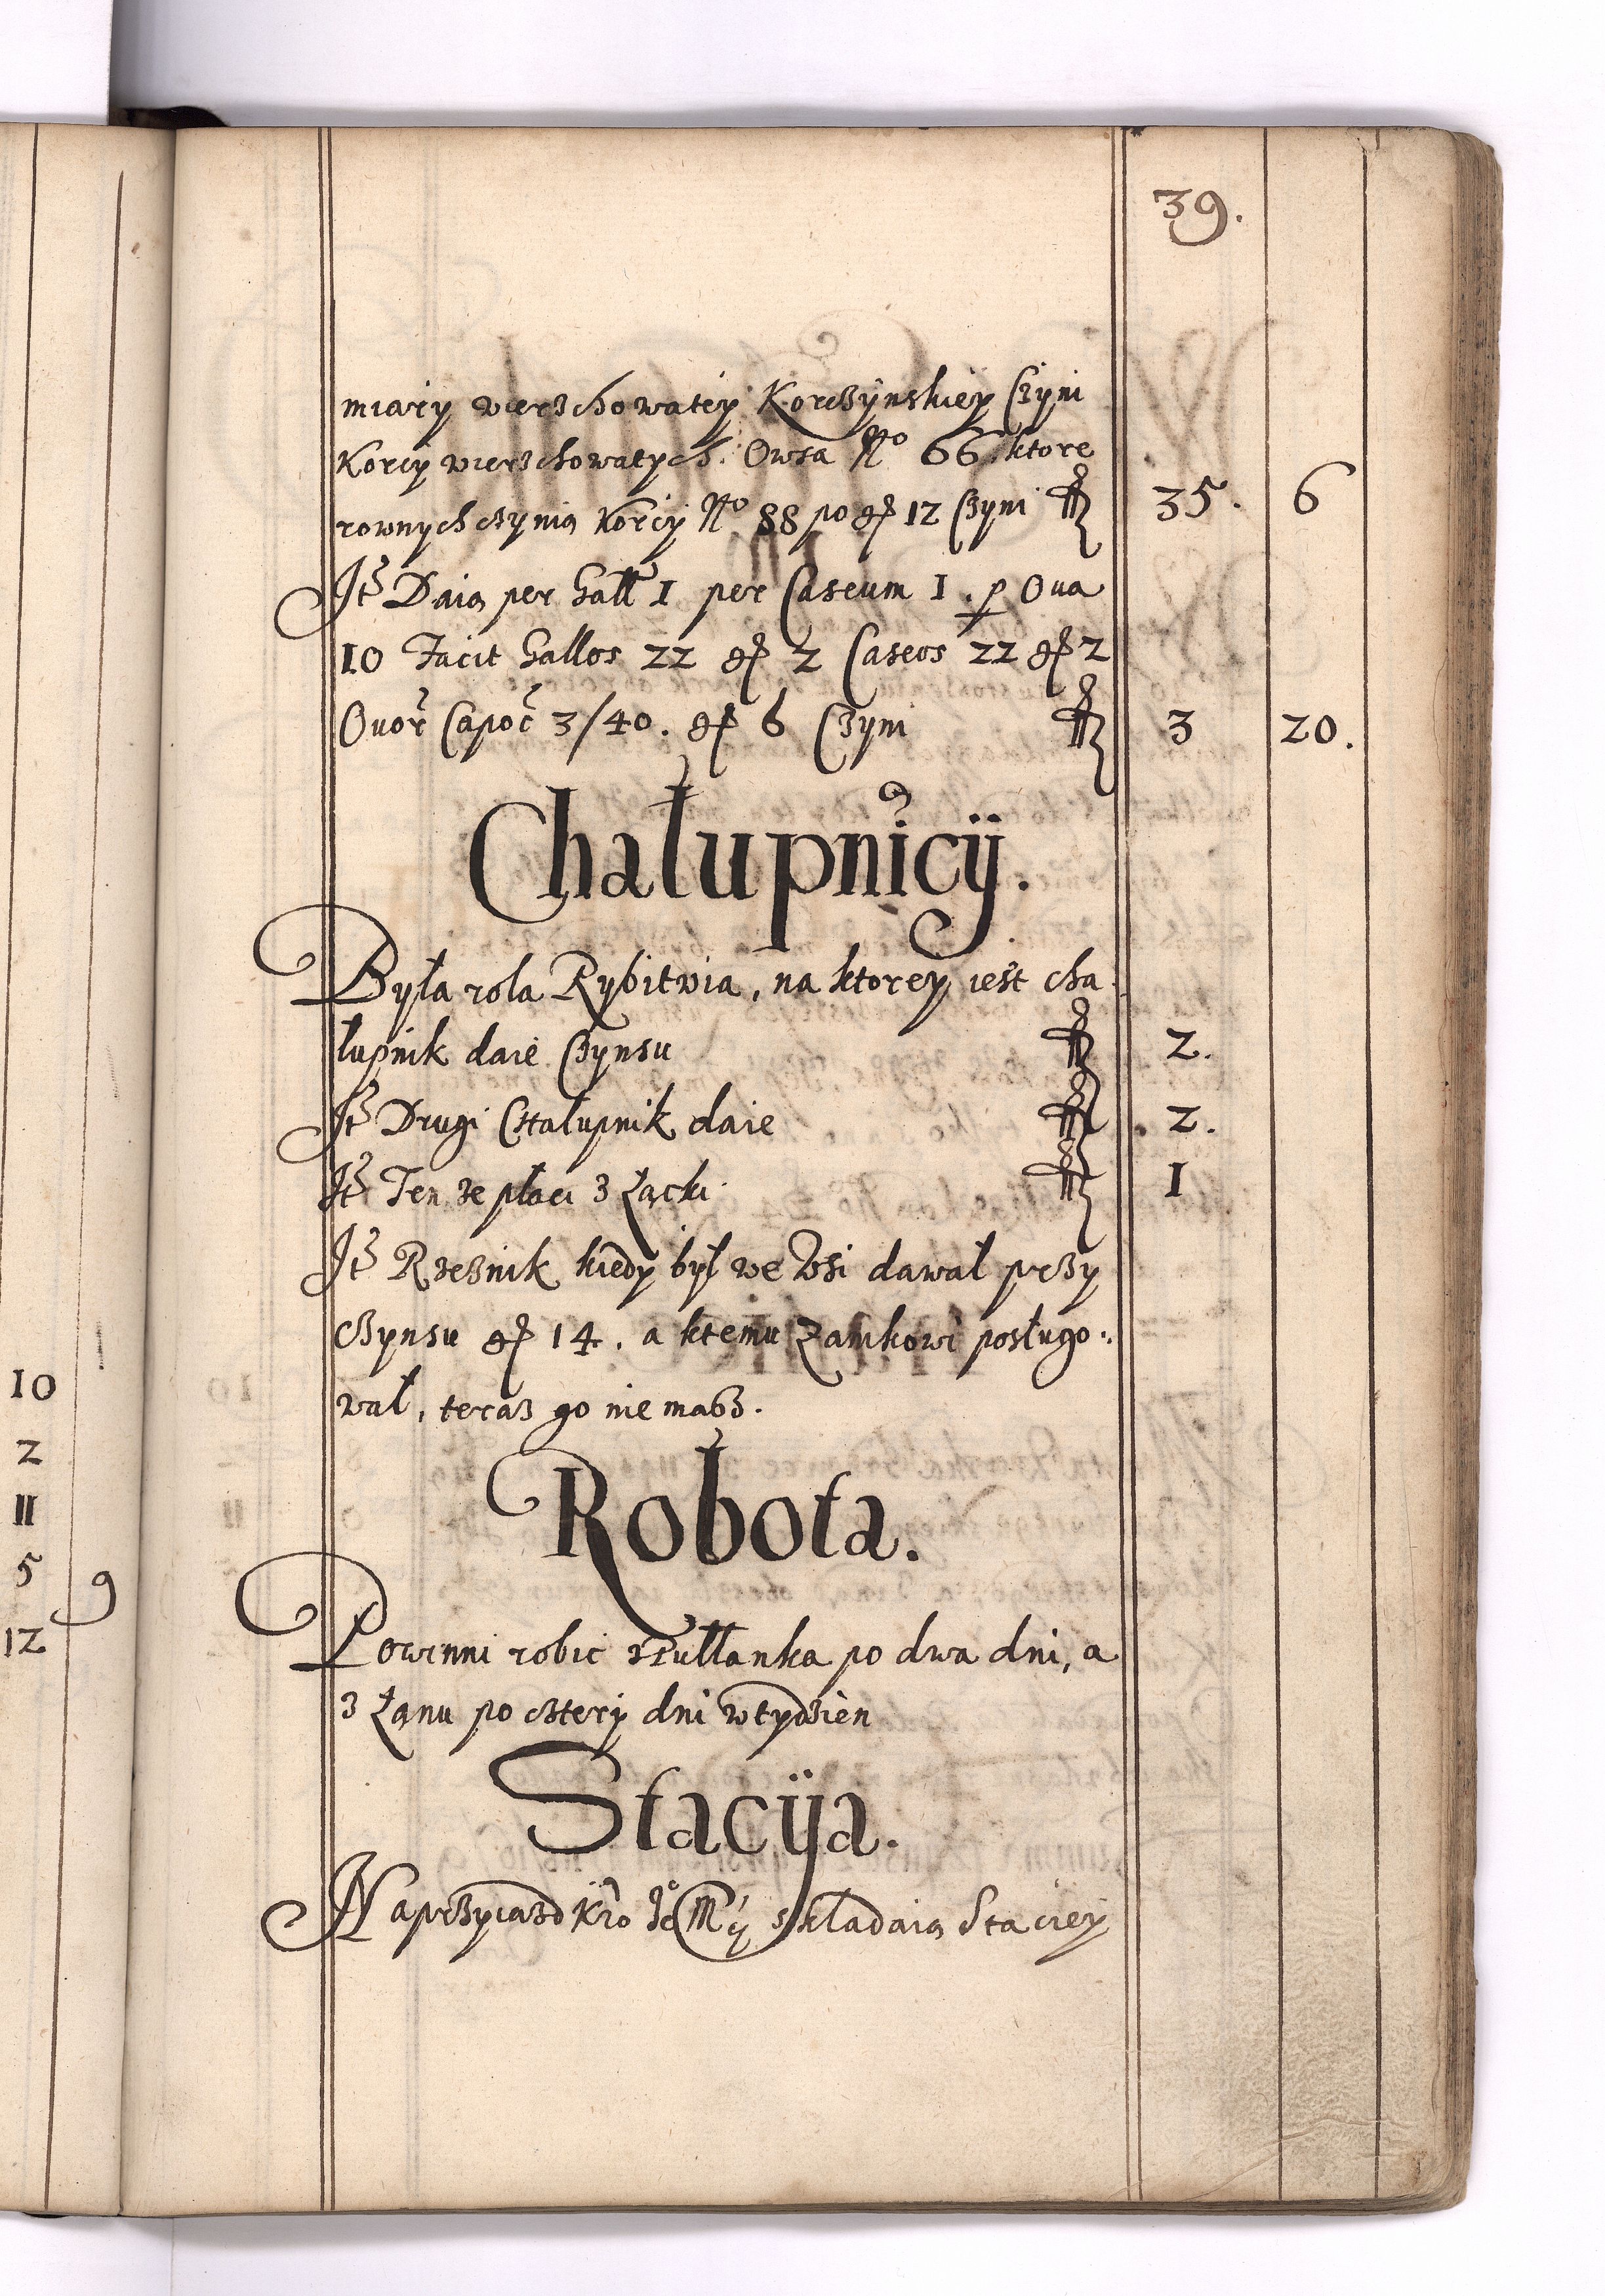 39.
miary wierzchowatey Korczÿnskiey Czyni
Korcy wierzchowatych Owsa Nº 66 ktore
rownych czynią Korcy Nº 88 po gř 12 Czyni ff 35. 6
Itē Daią per Gall 1 per Caseum 1. p Oua
10 Facit Gallos 22 gř 2 Caseos 22 gř 2
Ouor Capoc 3/40. gř 6 Czyni ff 3 20.
Chałupnicÿ.
Była rola Rybitwia, na ktorey iest cha
łupnik daie Czynsu ff 2.
Itē Drugi Chalupnik daie ff 2.
Itē Ten ze płaci z Łącki ff 1
Itē Rzeznik kiedy był we Wsi dawał przy
czynsu gř 14. a ktemu Zamkowi posługo
wał, teraz go nie masz.
Robota.
Powinni robic z pułłanka po dwa dni, a
z Łanu po cztery dni wtydzien
Stacÿa.
Naprzyiazd Kro Je Mcÿ składaią Staciey
10
2
II
5 9
12